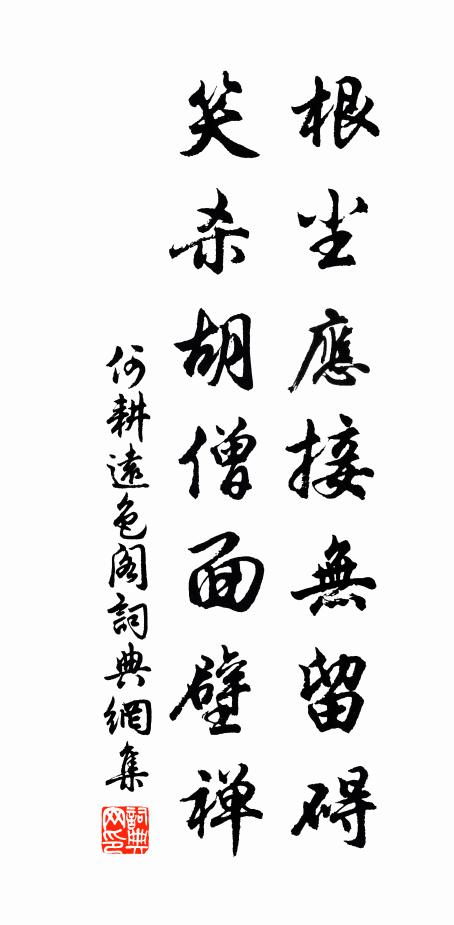 根尘應接無留碍
笑杀胡僧面壁禅
何耕遠色阁詞典網集
詞典网印